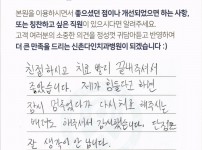 본원을 이용하시면서 좋으셨던 점이나 개선되었으면 하는 사항,
또는 칭찬하고 싶은 직원이 있으시다면 알려주세요.
고객 여러분의 소중한 의견을 정성껏 귀담아듣고 반영하며
더 큰 만족을 드리는 신촌다인치과병원이 되겠습니다 :)
친절하시고 치료 빨리 끝내주셔서
좋았습니다. 제가 힘들다고 하면
잠시 멈추었다가 다시 치료 해주시는
배려도 해주셔서 감사했습니다. 단점은
잘 생각이 안 납니다.